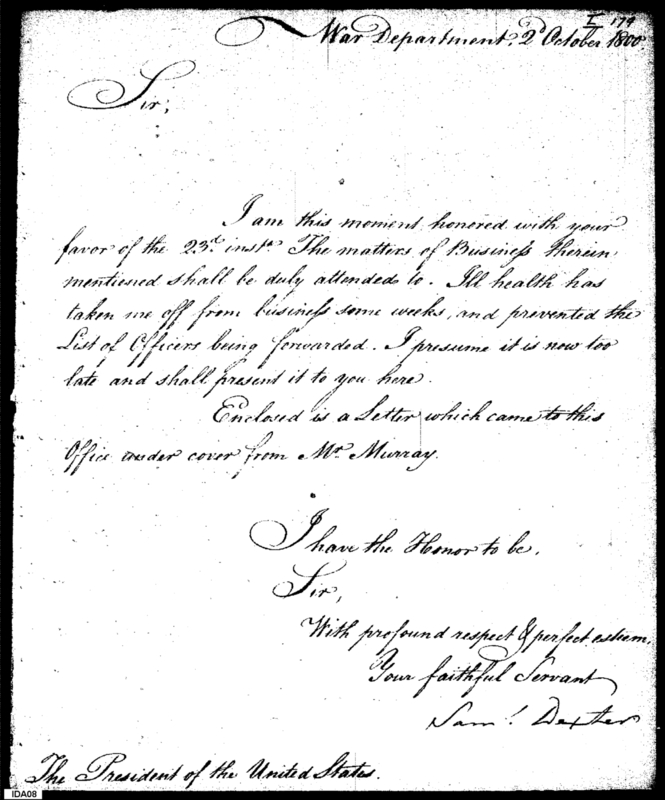 I 174
War Department, 2d October 1800
Sir;
I am this moment honored with your
favor of the 23d. insta. The matters of Business therein
mentioned shall be duly attended to. Ill health has
taken me off from business some weeks, and prevented the
List of Officers being forwarded. I presume it is now too
late and shall present it to you here.
Enclosed is a Letter which came to this
Office under cover from Mr. Murray.
I have the Honor to be,
Sir,
With profound respect & perfect esteem,
Your faithful Servant
Saml. Dexter
The President of the United States.
IDA08